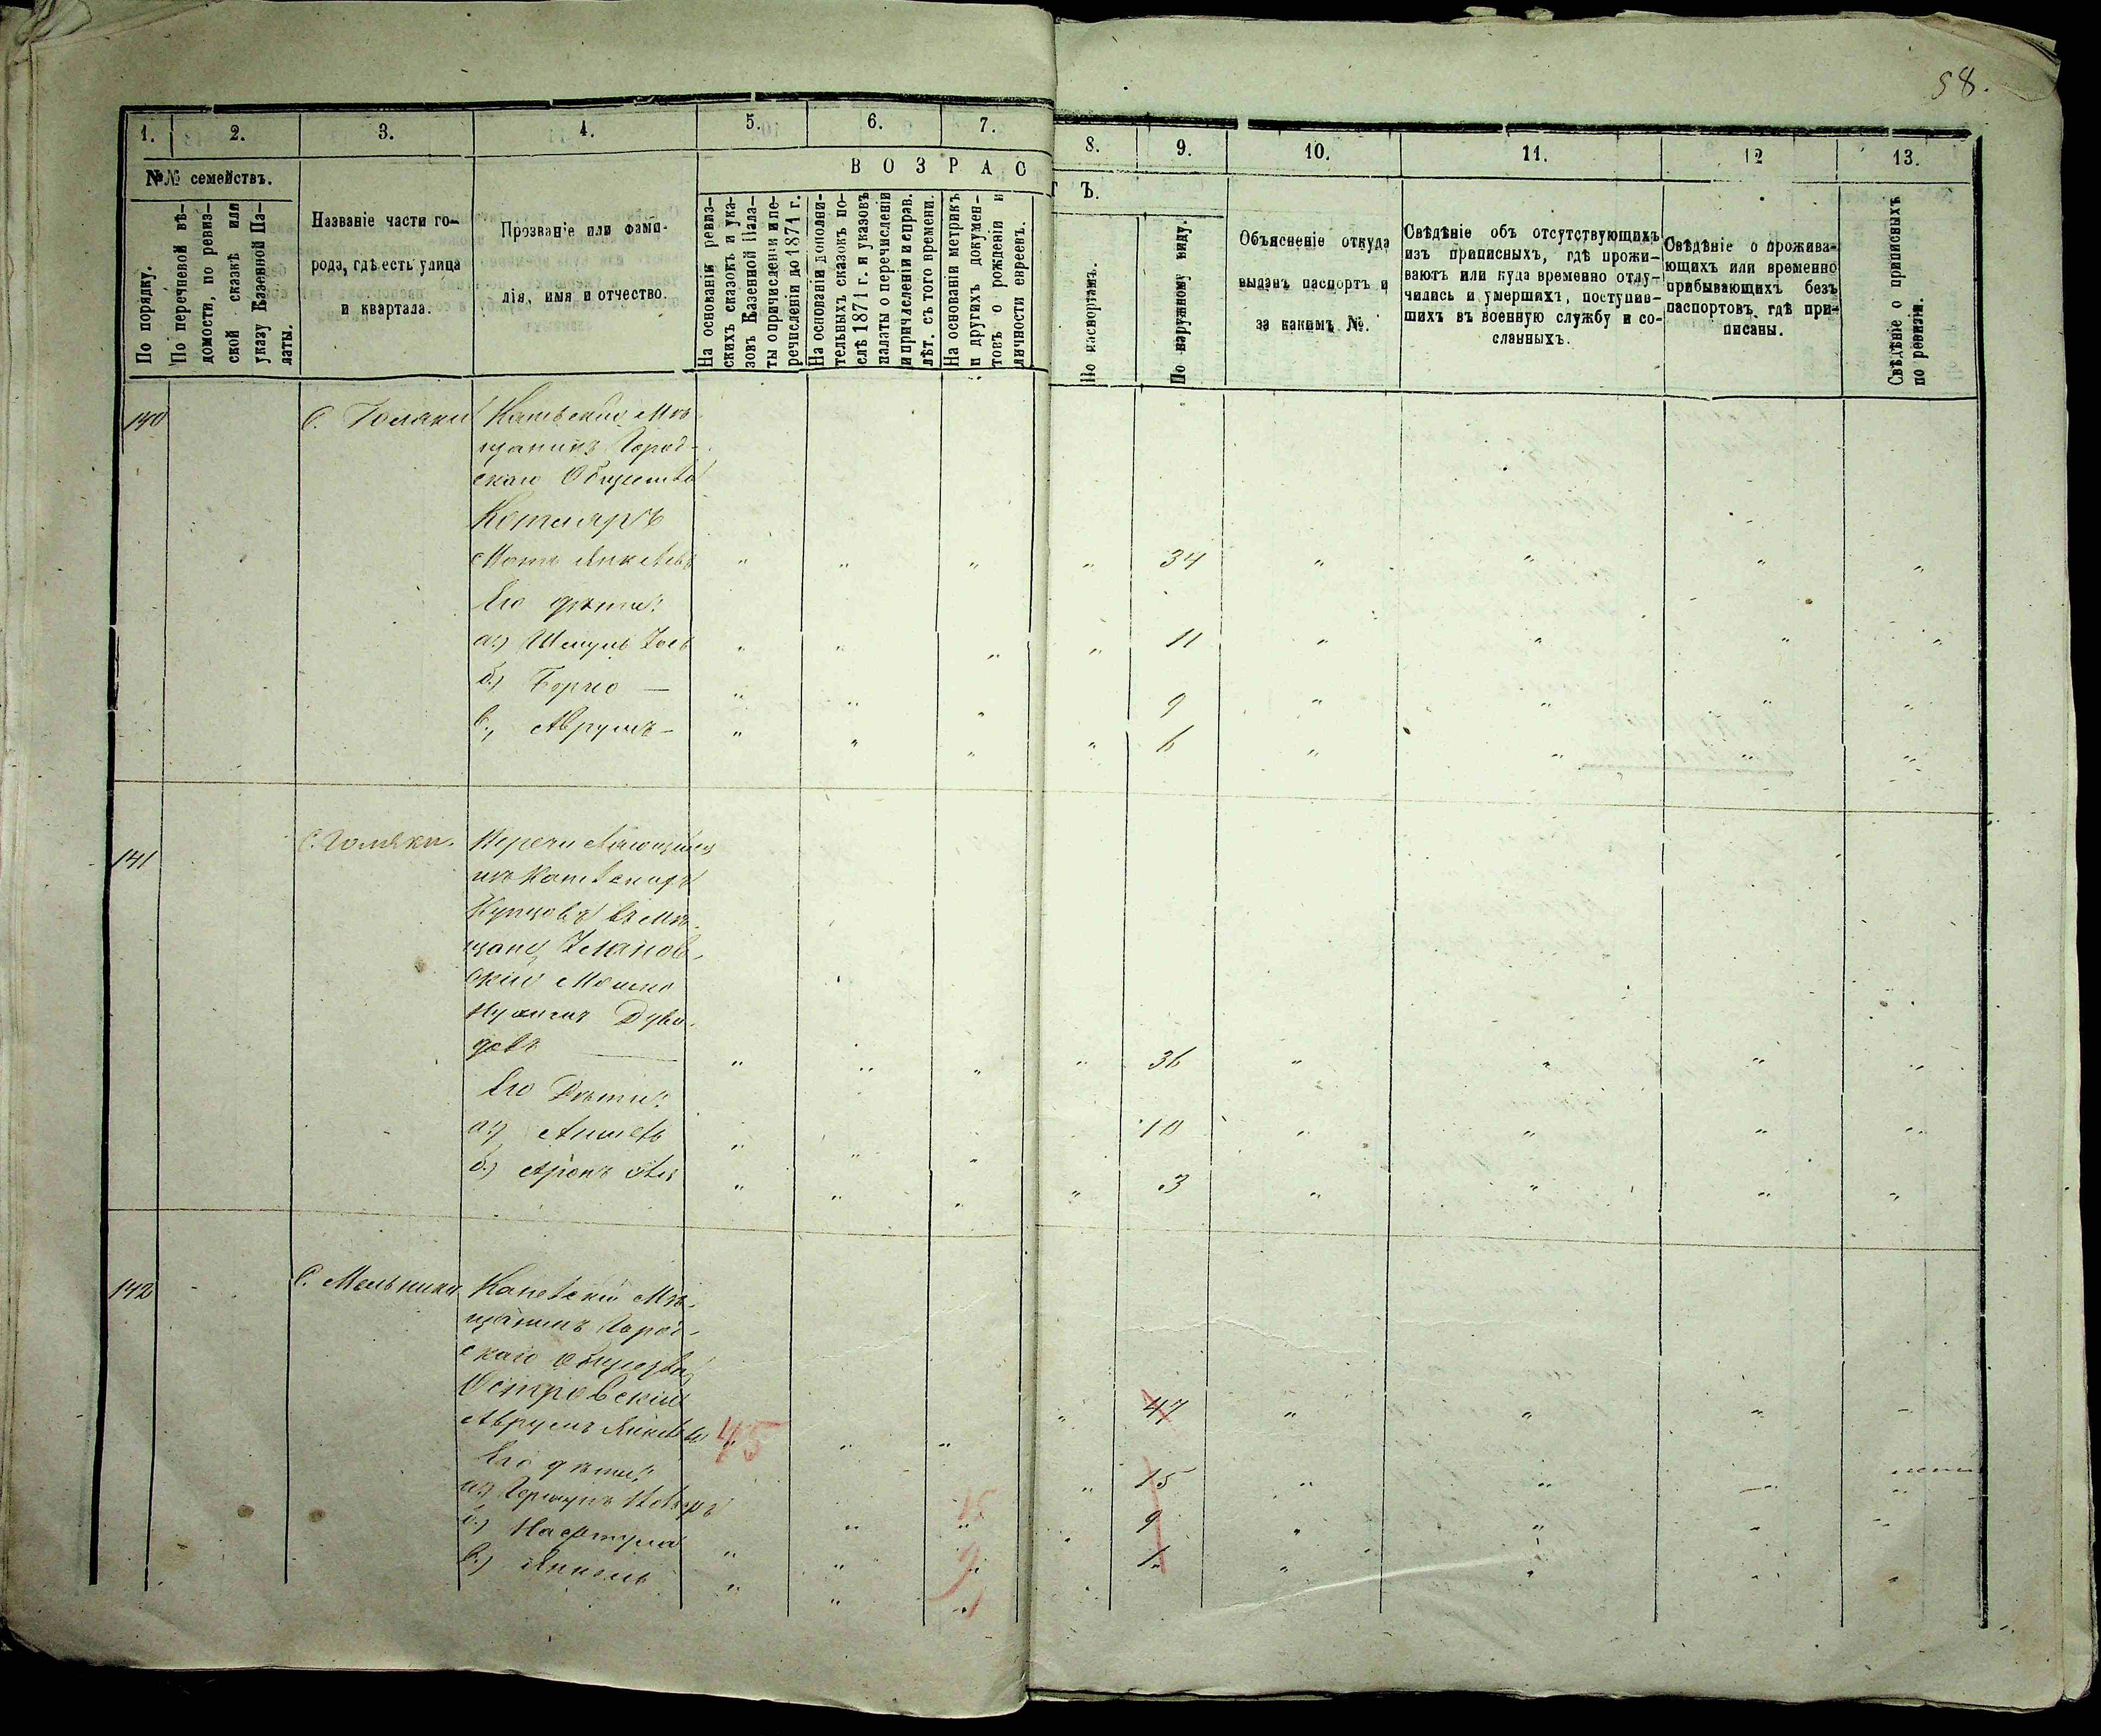 58.
1. 2. 3. 4. 5. 6. 7. 8. 9. 10. 11. 12 13.
№№ семействъ.
По порядку.
По перечневой вѣ-
домости, по ревиз-
ской сказкѣ или
указу Казенной Па-
латы.
Названіе части го-
рода, гдѣ есть улица
и квартала.
Прозваніе или фами-
лія, имя и отчество.
ВОЗРАСТЪ.
На основаніи ревиз-
скихъ сказокъ и ука-
зовъ Казенной Пала-
ты о причисленіи и пе-
речисленіи до 1871 г.
На основаніи дополни-
тельныхъ сказокъ по-
слѣ 1871 г. и указовъ
палаты о перечисленіи
и причисленіи и справ.
лѣт. съ того времени.
На основаніи метрикъ
и другихъ докумен-
товъ о рожденіи и
личности евреевъ.
По паспортамъ.
По наружному виду.
Объясненіе откуда
выданъ паспортъ и
за какимъ №.
Свѣдѣніе объ отсутствующихъ
изъ приписныхъ, гдѣ прожи-
ваютъ или куда временно отлу-
чились и умершихъ, поступив-
шихъ въ военную службу и со-
сланныхъ.
Свѣдѣніе о прожива-
ющихъ или временно
прибывающихъ безъ
паспортовъ гдѣ при-
писаны.
Свѣдѣніе о приписныхъ
по ревизіи.
140 С. Голяки Каневскій Мѣ-
щанинъ Город-
скаго Общества
Котляръ
" " " " 34 " " " "
Его дѣти:
а.) Шмуль " " " " 11 " " " "
б.) Борхо — " " " 9 " " " "
в., Аврумъ — " " " " 6 " " " "
141 С. Голяки.
изъ Каневскихъ
Купцовъ въ Мѣ-
щане
скій Мошко
довъ — " " " " 36 " " " "
Его Дѣти:
а.) " " " 10 " " " "
б.) Аронъ " " " " 3 " " " "
142 С. Мельники Каневскій Мѣ-
щанинъ Город-
скаго общества
Островскій
Аврумъ 45 " " " " 47 " " " "
Его дѣти:
а.) " 15 " " 15 " "
б.) " " 9 " 9 " " " "
в.) Янкель " " 1 " 1 " " " "